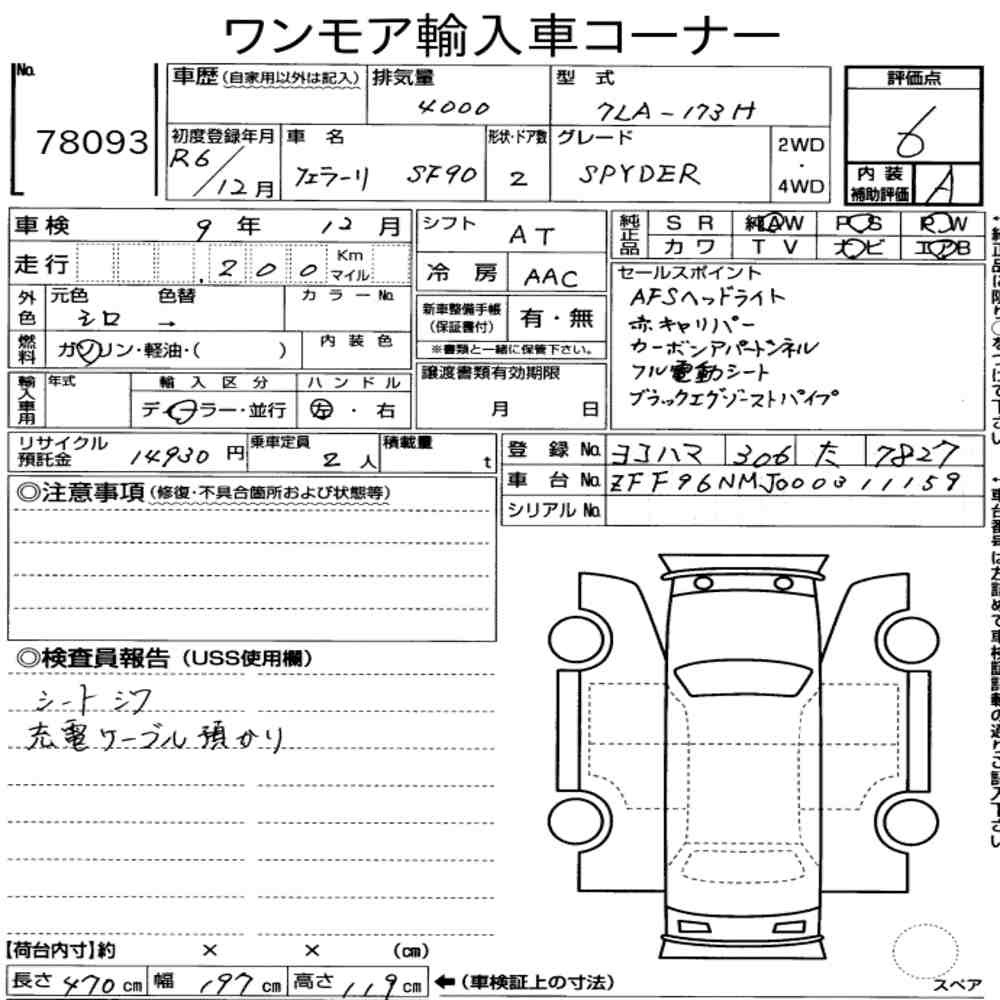 ワンモア輸入車コーナー
No.
78093
車歴(自家用以外は記入)
排気量
4000
型 式
7LA-173H
評価点
6
初度登録年月
R6/12月
車 名
フェラーリ SF90
形状・ドア数
2
グレード
SPYDER
2WD
・
4WD
内 装
補助評価
A
車検 9年 12月
走行 200 Km マイル
シフト
AT
冷 房 AAC
純正品 SR 純AW PS RW
カワ TV 大ビ エアB
外色 元色 色替 カラーNo.
シロ →
燃料 ガソリン・軽油・( )
内 装 色
新車整備手帳
(保証書付)
有・無
※書類と一緒に保管下さい。
セールスポイント
AFSヘッドライト
赤キャリパー
カーボンアパートンネル
フル電動シート
ブラックエグゾーストパイプ
輸入車用 年式 輸入区分 ハンドル
ディーラー・並行 左・右
譲渡書類有効期限
月 日
リサイクル
預託金 14930円
乗車定員 2人
積載量 t
登 録 No. ヨコハマ 306 た 7827
車 台 No. ZFF96NMJ000311159
シリアル No.
◎注意事項(修復・不具合箇所および状態等)
◎検査員報告(USS使用欄)
シートシワ
充電ケーブル預かり
【荷台内寸】約 × × (cm)
長さ 470cm 幅 197cm 高さ 119cm ←(車検証上の寸法)
スペア
↑純正品に限り○をつけて下さい
↑車台番号は左詰めで車検証記載の通りご記入下さい